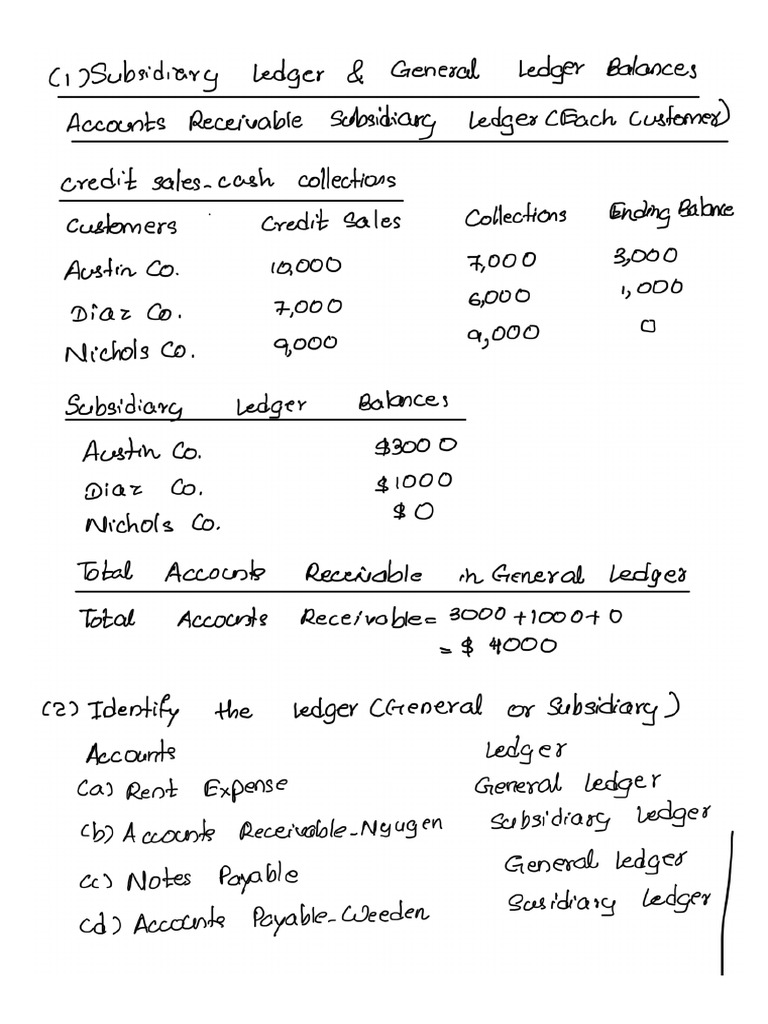 (1) Subsidiary Ledger & General Ledger Balances
Accounts Receivable Subsidiary Ledger (Each Customer)
Credit sales-cash collections
Customers Credit Sales Collections Ending Balance
Austin Co. 10,000 7,000 3,000
Diaz Co. 7,000 6,000 1,000
Nichols Co. 9,000 9,000 0
Subsidiary Ledger Balances
Austin Co. $3000
Diaz Co. $1000
Nichols Co. $0
Total Accounts Receivable in General Ledger
Total Accounts Receivable = 3000+1000+0
= $ 4000
(2) Identify the Ledger (General or Subsidiary)
Accounts Ledger
(a) Rent Expense General Ledger
(b) Accounts Receivable-Nyugen Subsidiary Ledger
(c) Notes Payable General Ledger
(d) Accounts Payable-Weeden Susidiary Ledger